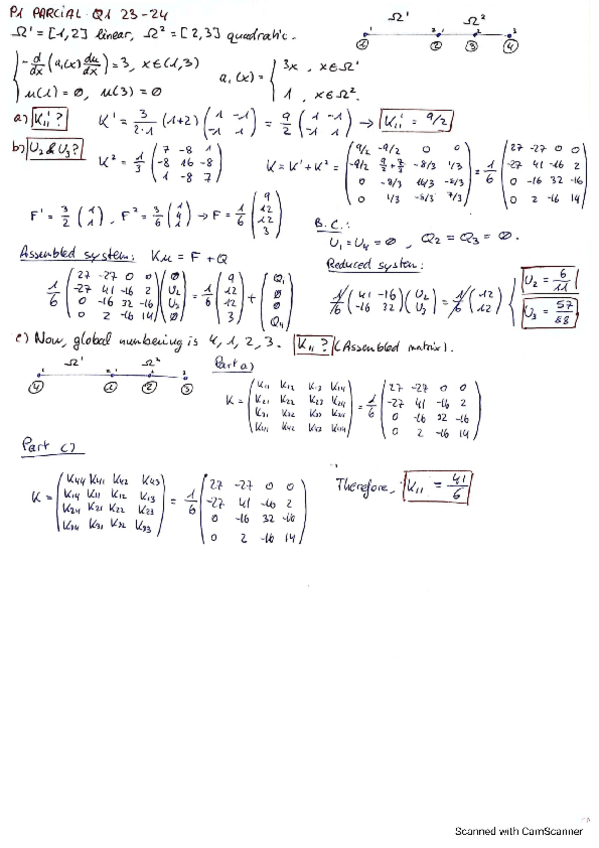 P1 PARCIAL Q1 23-24
Ω¹ = [1,2] linear, Ω² = [2,3] quadratic.
Ω¹ Ω²
① ② ③ ④
-d/dx (a₁(x) du/dx) = 3, x∈(1,3)
u(1) = 0, u(3) = 0
a₁(x) = { 3x, x∈Ω¹
1, x∈Ω².
a) K¹₁₁? K¹ = 3/(2·1) (1+2) (1 -1; -1 1) = 9/2 (1 -1; -1 1) → K¹₁₁ = 9/2
b) U₂ & U₃? K² = 1/3 (7 -8 1; -8 16 -8; 1 -8 7) K = K¹ + K² = (9/2 -9/2 0 0; -9/2 9/2+7/3 -8/3 1/3; 0 -8/3 16/3 -8/3; 0 1/3 -8/3 7/3) = 1/6 (27 -27 0 0; -27 41 -16 2; 0 -16 32 -16; 0 2 -16 14)
F¹ = 3/2 (1; 1), F² = 3/6 (1; 4; 1) → F = 1/6 (9; 12; 12; 3)
B.C.:
U₁ = U₄ = 0, Q₂ = Q₃ = 0.
Assembled system: Ku = F + Q
1/6 (27 -27 0 0; -27 41 -16 2; 0 -16 32 -16; 0 2 -16 14) (0; U₂; U₃; 0) = 1/6 (9; 12; 12; 3) + (Q₁; 0; 0; Q₄)
Reduced system:
1/6 (41 -16; -16 32) (U₂; U₃) = 1/6 (12; 12) { U₂ = 6/11
U₃ = 57/88
c) Now, global numbering is 4, 1, 2, 3. K₁₁? (Assembled matrix).
Ω¹ Ω²
④ ① ② ③
Part a)
K = (K₁₁ K₁₂ K₁₃ K₁₄; K₂₁ K₂₂ K₂₃ K₂₄; K₃₁ K₃₂ K₃₃ K₃₄; K₄₁ K₄₂ K₄₃ K₄₄) = 1/6 (27 -27 0 0; -27 41 -16 2; 0 -16 32 -16; 0 2 -16 14)
Part c)
K = (K₄₄ K₄₁ K₄₂ K₄₃; K₁₄ K₁₁ K₁₂ K₁₃; K₂₄ K₂₁ K₂₂ K₂₃; K₃₄ K₃₁ K₃₂ K₃₃) = 1/6 (27 -27 0 0; -27 41 -16 2; 0 -16 32 -16; 0 2 -16 14)
Therefore, K₁₁ = 41/6
Scanned with CamScanner